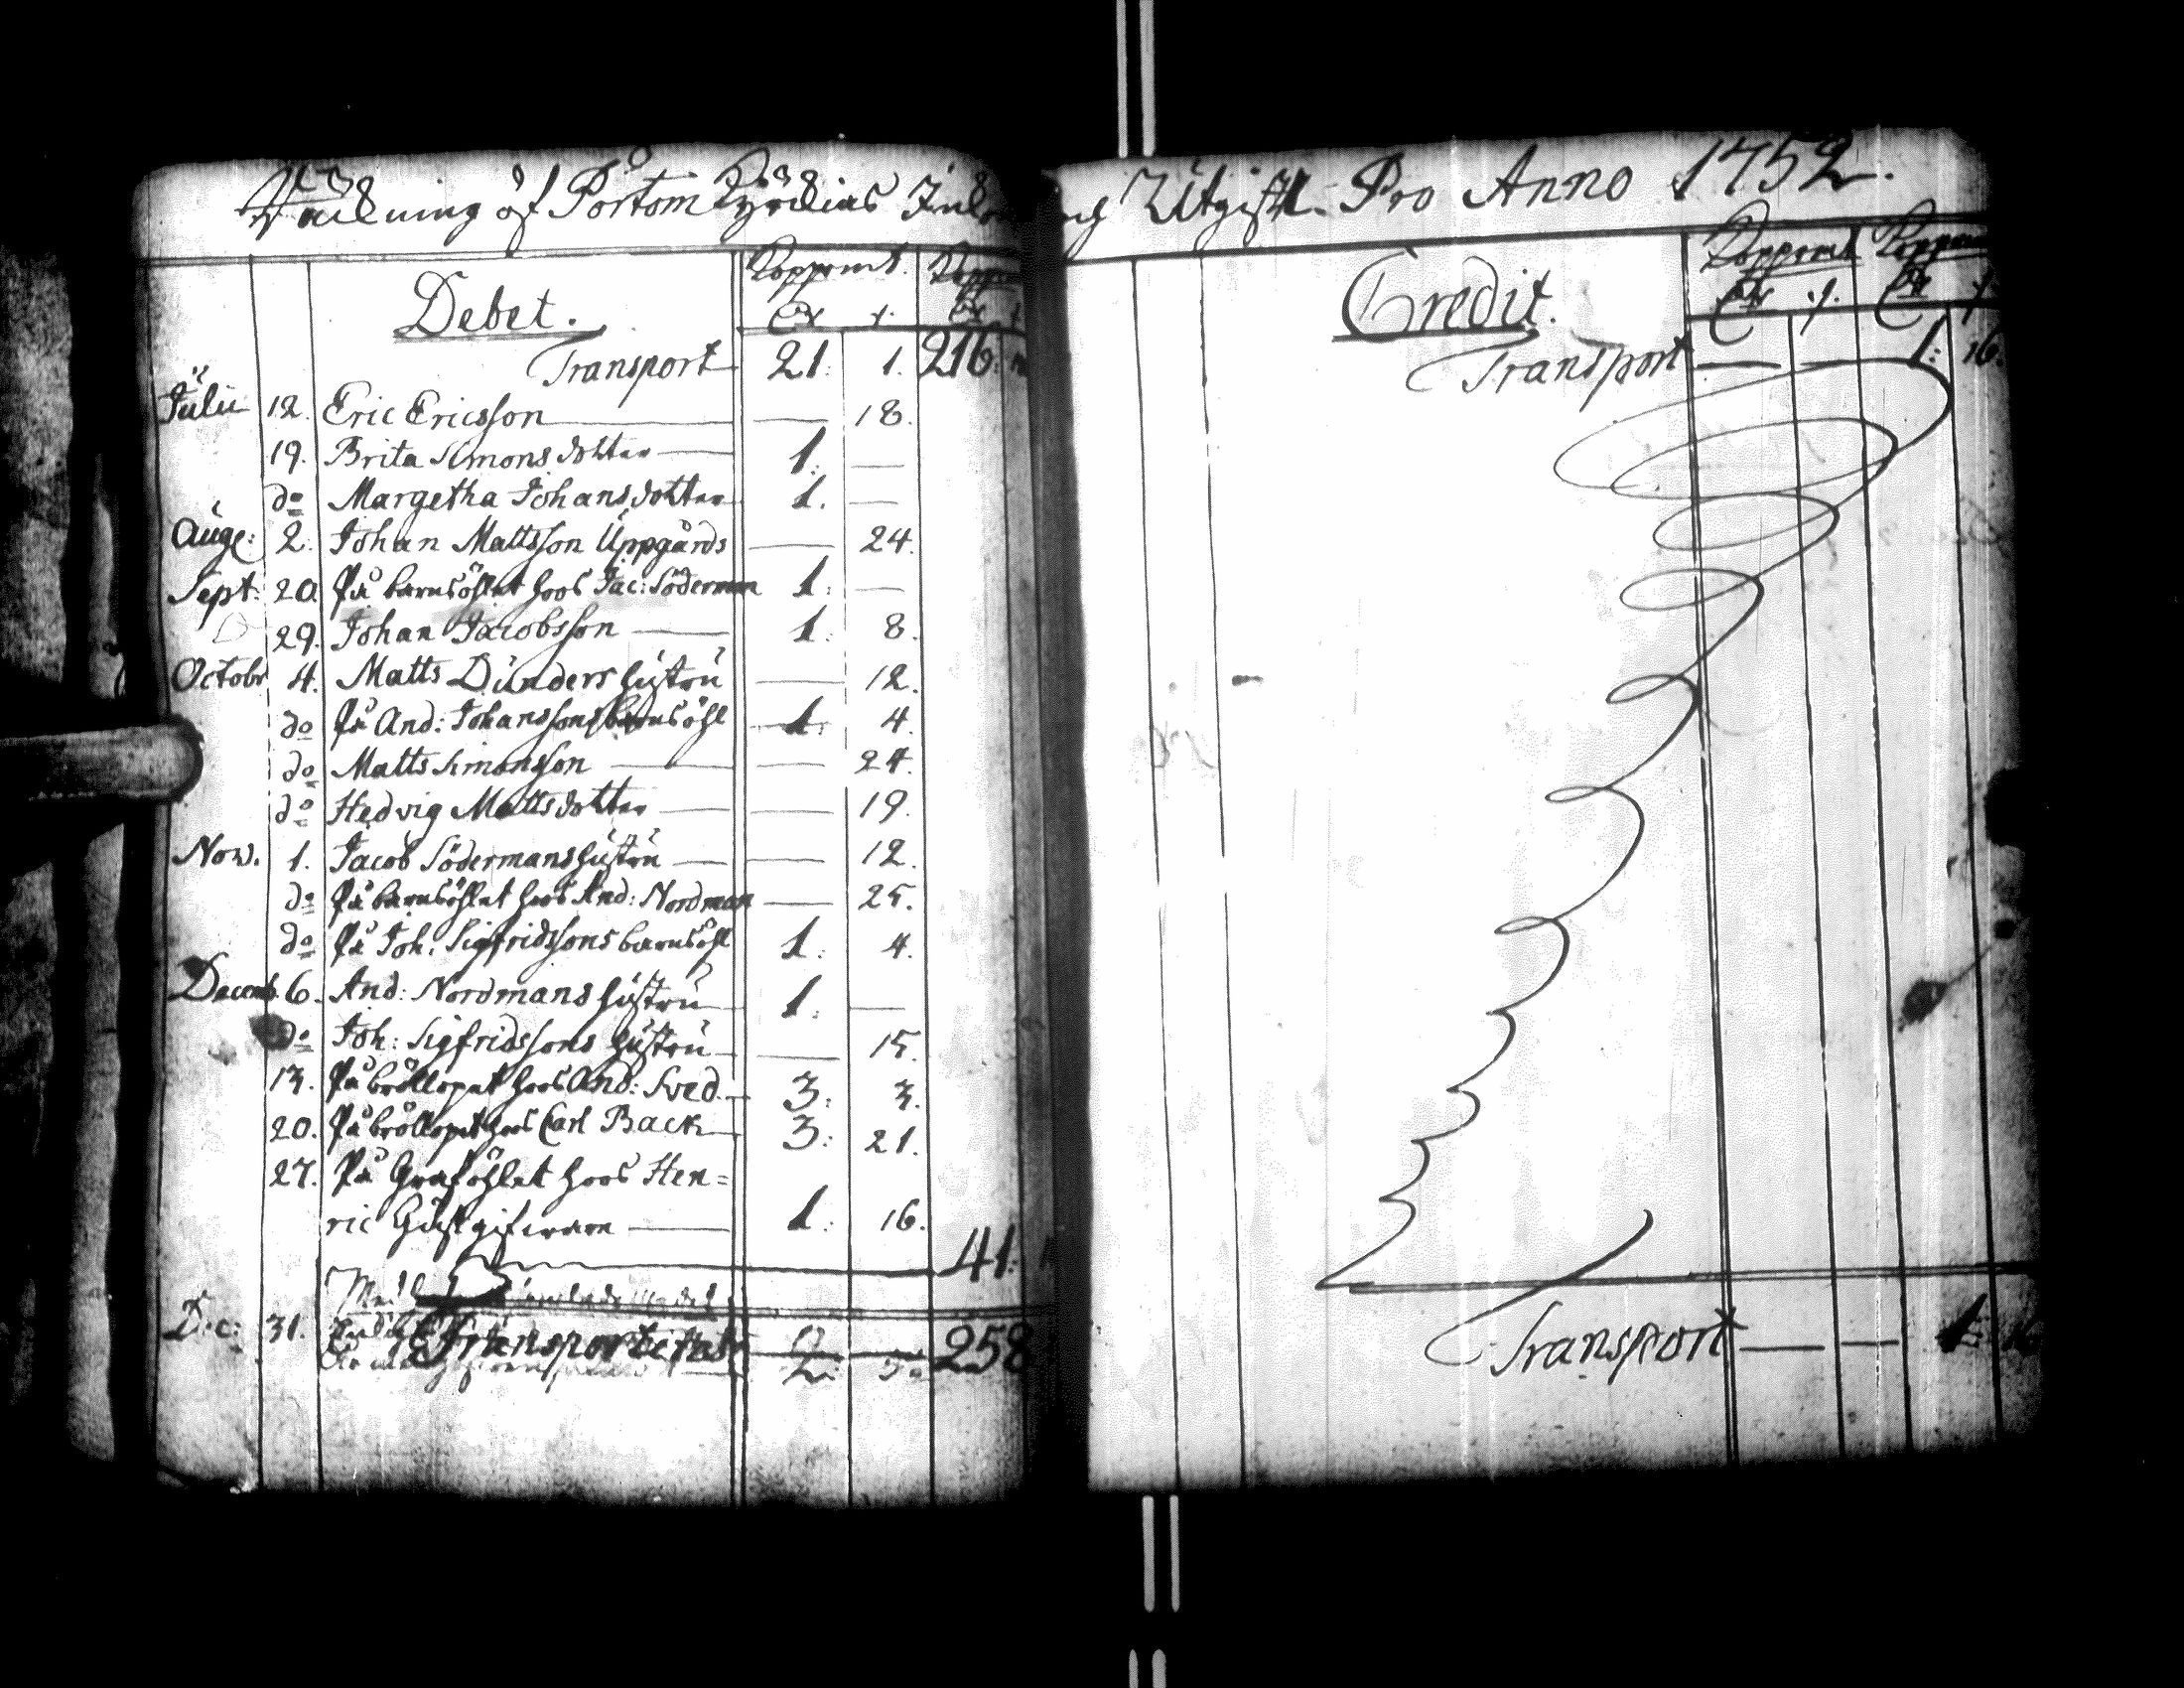 Räkning öf Pörtom Kÿrckias Inko och Utgift. Pro Anno 1752.
Debet. Copparmt. Copparm
Transport 21. 1. 216:
Julii 12. Eric Ericsson — 18.
19. Brita Simons dotter 1. —
do Margetha Johans dotter 1. —
Aug: 2. Johan Mattsson Uppgårds — 24.
Sept: 20. På barnsöhlet hoos Jac: Söderman 1. —
29. Johan Jacobsson 1. 8.
Octobr 4. Matts Dunders hustru — 12.
do På And: Johanssons barnsöhl 1. 4.
do Matts Simonsson — 24.
do Hedvig Matts dotter — 19.
Nov. 1. Jacob Södermans hustru — 12.
do På barnsöhlet hoos And: Nordman — 25.
do På Joh: Sigfridssons barnsöhl 1. 4.
Decemb. 6. And: Nordmans hustru 1. —
do Joh: Sigfridssons hustru — 15.
13. På bröllopet hoos And: Sved. 3. 3.
20. På bröllopet hoos Carl Back 3: 21.
27. På Graföhlet hoos Hen=
ric Gästgifwaren 1. 16.
41:
Dec: 31. Transporteras 258
Credit. Copparmt Copparm
Transport — 1: 16.
Transport — — 1: 16